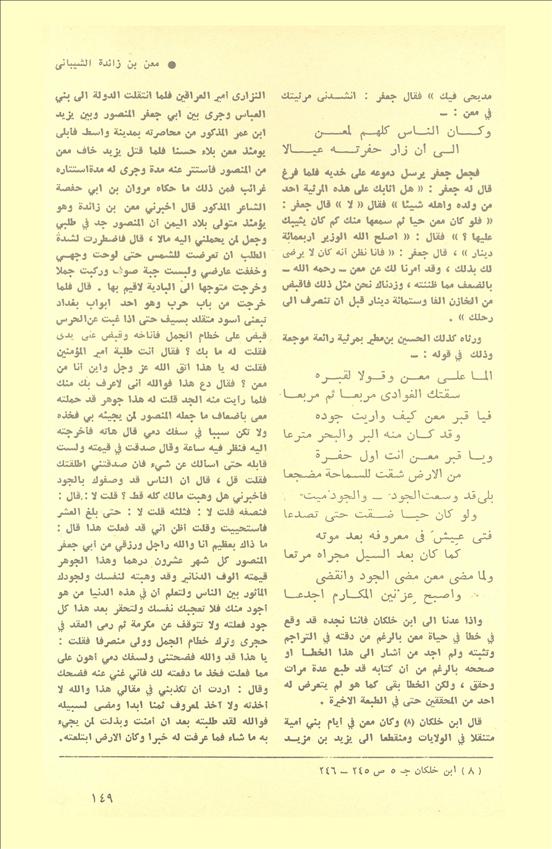 ● معن بن زائدة الشيبانى
مديحى فيك » فقال جعفر : انشدنى مرثيتك
في معن : ـ
وكان الناس كلهم لمعن
الى ان زار حفرته عيالا
فجعل جعفر يرسل دموعه على خديه فلما فرغ
قال له جعفر : « هل اثابك على هذه المرثية احد
من ولده واهله شيئا » فقال « لا » قال جعفر :
« فلو كان معن حيا ثم سمعها منك كم كان يثيبك
عليها ؟ » فقال : « اصلح الله الوزير اربعمائة
دينار » ، قال جعفر : « فانا نظن أنه كان لا يرضى
لك بذلك ، وقد امرنا لك عن معن ـ رحمه الله ـ
بالضعف مما ظننته ، وزدناك نحن مثل ذلك فاقبض
من الخازن الفا وستمائة دينار قبل ان تنصرف الى
رحلك » .
ورثاه كذلك الحسين بن مطير بمرثية رائعة موجعة
وذلك في قوله : ـ
الما على معن وقولا لقبره
سقتك الغوادى مربعا ثم مربعا
فيا قبر معن كيف واريت جوده
وقد كان منه البر والبحر مترعا
ويا قبر معن انت اول حفرة
من الارض شقت للسماحة مضجعا
بلى قد وسعت الجود ـ والجود ميت ـ
ولو كان حيا ضقت حتى تصدعا
فتى عيش في معروفه بعد موته
كما كان بعد السيل مجراه مرتعا
ولما مضى معن مضى الجود وانقضى
واصبح عرنين المكارم اجدعا
واذا عدنا الى ابن خلكان فاننا نجده قد وقع
في خطا في حياة معن بالرغم من دقته في التراجم
وتثبته ولم اجد من أشار الى هذا الخطا او
صححه بالرغم من ان كتابه قد طبع عدة مرات
وحقق ، ولكن الخطا بقى كما هو لم يتعرض له
احد من المحققين حتى في الطبعة الاخيرة .
قال ابن خلكان (٨) وكان معن في ايام بني امية
متنقلا في الولايات ومنقطعا الى يزيد بن مزيد
النزارى أمير العراقين فلما انتقلت الدولة الى بني
العباس وجرى بين ابي جعفر المنصور وبين يزيد
ابن عمر المذكور من محاصرته بمدينة واسط فابلى
يومئذ معن بلاء حسنا فلما قتل يزيد خاف معن
من المنصور فاستتر عنه مدة وجرى له مدة استتاره
غرائب فمن ذلك ما حكاه مروان بن ابي حفصة
الشاعر المذكور قال اخبرني معن بن زائدة وهو
يؤمئذ متولى بلاد اليمن أن المنصور جد في طلبي
وجعل لمن يحملني اليه مالا ، قال فاضطررت لشدة
الطلب ان تعرضت للشمس حتى لوحت وجهي
وخففت عارضي ولبست جبة صوف وركبت جملا
وخرجت متوجها الى البادية لاقيم بها . قال فلما
خرجت من باب حرب وهو احد ابواب بغداد
تبعنى اسود متقلد بسيف حتى اذا غبت عن الحرس
قبض على خطام الجمل فاناخه وقبض على يدى
فقلت له ما بك ؟ فقال انت طلبة امير المؤمنين
فقلت له يا هذا اتق الله عز وجل واين أنا من
معن ؟ فقال دع هذا فوالله انى لاعرف بك منك
فلما رايت منه الجد قلت له هذا جوهر قد حملته
معى باضعاف ما جعله المنصور لمن يجيئه بي فخذه
ولا تكن سببا في سفك دمي قال هاته فاخرجته
اليه فنظر فيه ساعة وقال صدقت في قيمته ولست
قابله حتى اسالك عن شيء فان صدقتني اطلقتك
فقلت قل ، قال ان الناس قد وصفوك بالجود
فاخبرني هل وهبت مالك كله قط ؟ قلت لا : قال :
فنصفه قلت لا : فثلثه قلت لا : حتى بلغ العشر
فاستحييت وقلت اظن اني قد فعلت هذا قال :
ما ذاك بعظيم انا والله راجل ورزقي من ابي جعفر
المنصور كل شهر عشرون درهما وهذا الجوهر
قيمته الوف الدنانير وقد وهبته لنفسك ولجودك
الماثور بين الناس ولتعلم ان في هذه الدنيا من هو
أجود منك فلا تعجبك نفسك ولتحقر بعد هذا كل
جود فعلته ولا تتوقف عن مكرمة ثم رمى العقد في
حجرى وترك خطام الجمل وولى منصرفا فقلت :
يا هذا قد والله فضحتني ولسفك دمي أهون على
مما فعلت فخذ ما دفعته لك فانى غني عنه فضحك
وقال : اردت أن تكذبني في مقالي هذا والله لا
أخذته ولا أخذ لمعروف ثمنا ابدا ومضى لسبيله
فوالله لقد طلبته بعد ان امنت وبذلت لمن يجيء
به ما شاء فما عرفت له خبرا وكان الارض ابتلعته.
(٨) ابن خلكان جـ ٥ ص ٢٤٥ ـ ٢٤٦
١٤٩